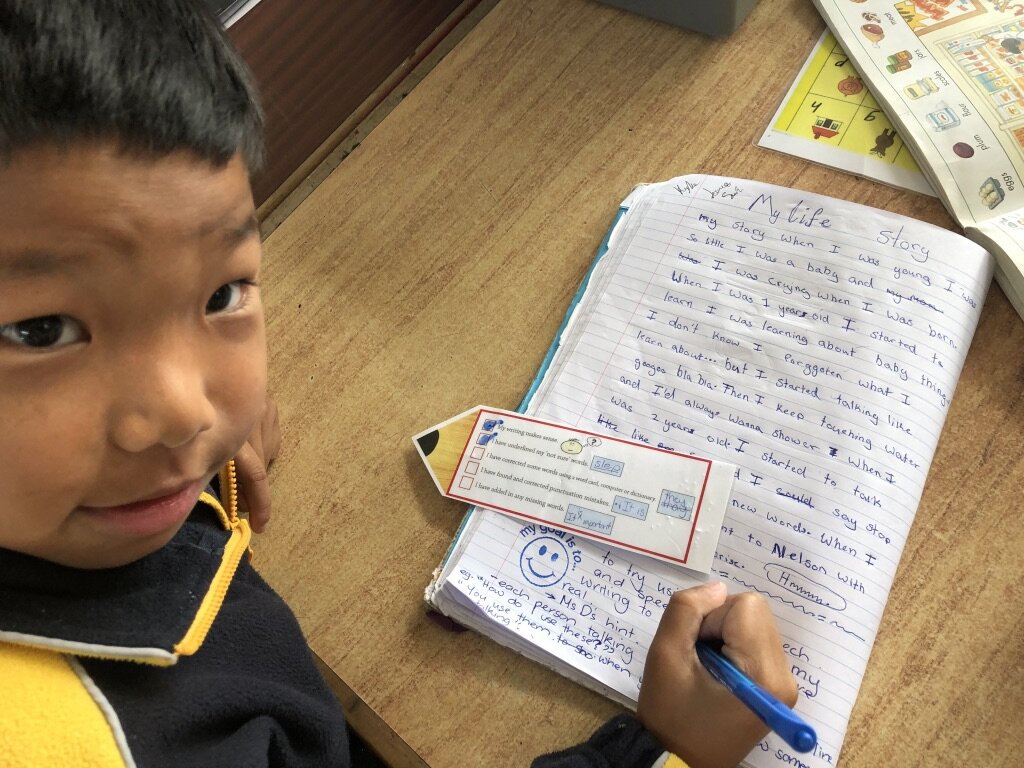 My life story
my story when I was young I was
so little I was a baby and
I was crying when I was born.
When I was 1 years old I started to
learn I was learning about baby things
I don't know I forggoten what I
learn about... but I started talking like
googoo bla bla. Then I keep touching water
and I'd always wanna shower I when I
was 2 years old. I started to talk
little like
d I could say stop
new words. When I
nt to Nelson with
rise. Hmmmm.
My writing makes sense.
I have underlined my 'not sure' words. step
I have corrected some words using a word card, computer or dictionary. they
I have found and corrected punctuation mistakes. It is
I have added in any missing words. It important
my goal is to...
to try us
and spee
writing to
real
→ Ms D's hint.
eg. - each person talking
"How do I use these??"
"You use them to
talking". when
ech.
my
re
line
w some
moat
jars
scales
flour
plum
eggs
d
4
g